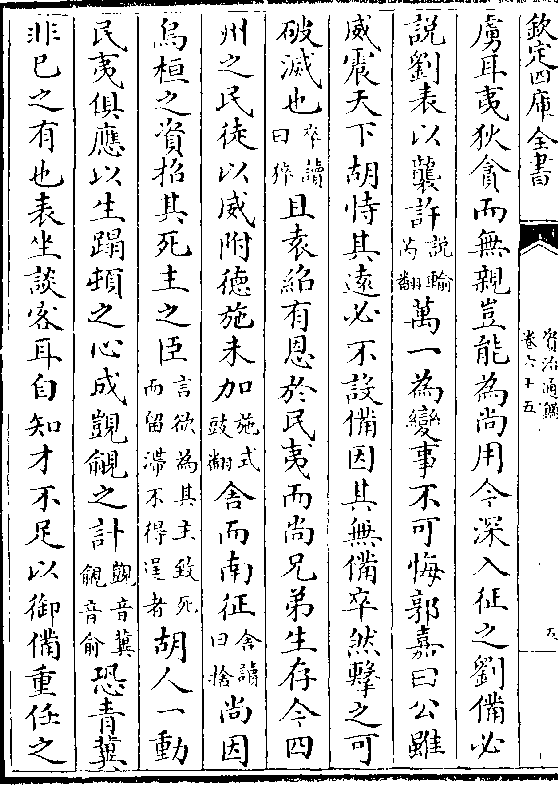 欽定四庫全書
資治通鑑
卷六十五
虜耳夷狄貪而無親豈能為尚用今深入征之劉備必
說劉表以襲許說輸芮翻萬一為變事不可悔郭嘉曰公雖
威震天下胡恃其遠必不設備因其無備卒然擊之可
破滅也卒讀曰猝且袁紹有恩於民夷而尚兄弟生存今四
州之民徒以威附德施未加施式豉翻舍而南征舍讀曰捨尚因
烏桓之資招其死主之臣言欲為其主致死而留滯不得逞者胡人一動
民夷俱應以生蹋頓之心成覬覦之計覬音冀覦音俞恐青冀
非已之有也表坐談客耳自知才不足以御備重任之